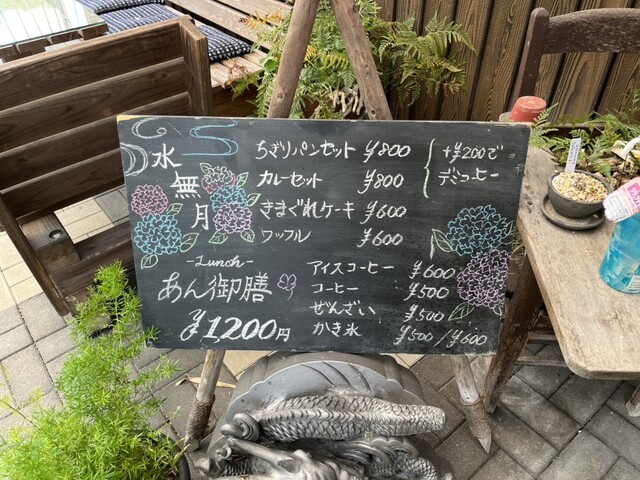 水無月
-Lunch-
あん御膳
¥1,200円
ちぎりパンセット ¥800
カレーセット ¥800
+¥200で
デミコーヒー
きまぐれケーキ ¥600
ワッフル ¥600
アイスコーヒー ¥600
コーヒー ¥500
ぜんざい ¥500
かき氷 ¥500/¥600